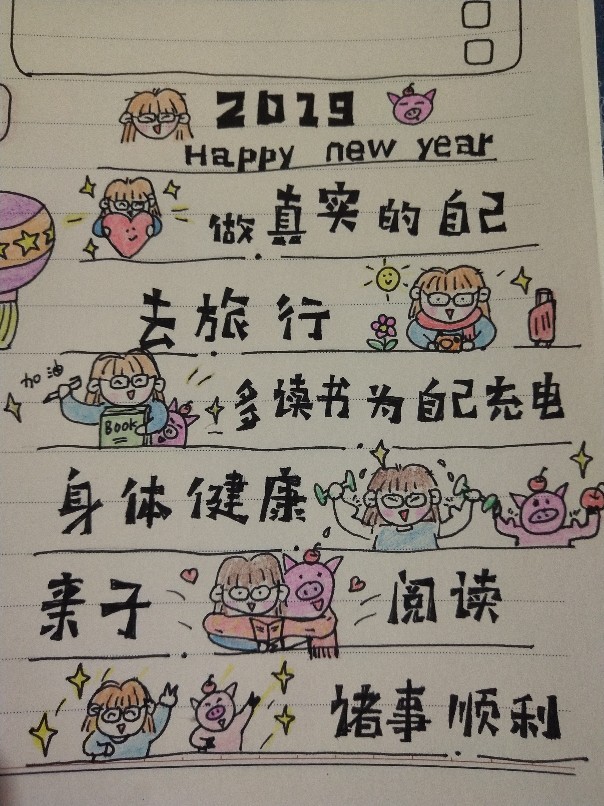 2019
Happy new year
做真实的自己
去旅行
加油
BOOK
多读书为自己充电
身体健康
亲子阅读
诸事顺利